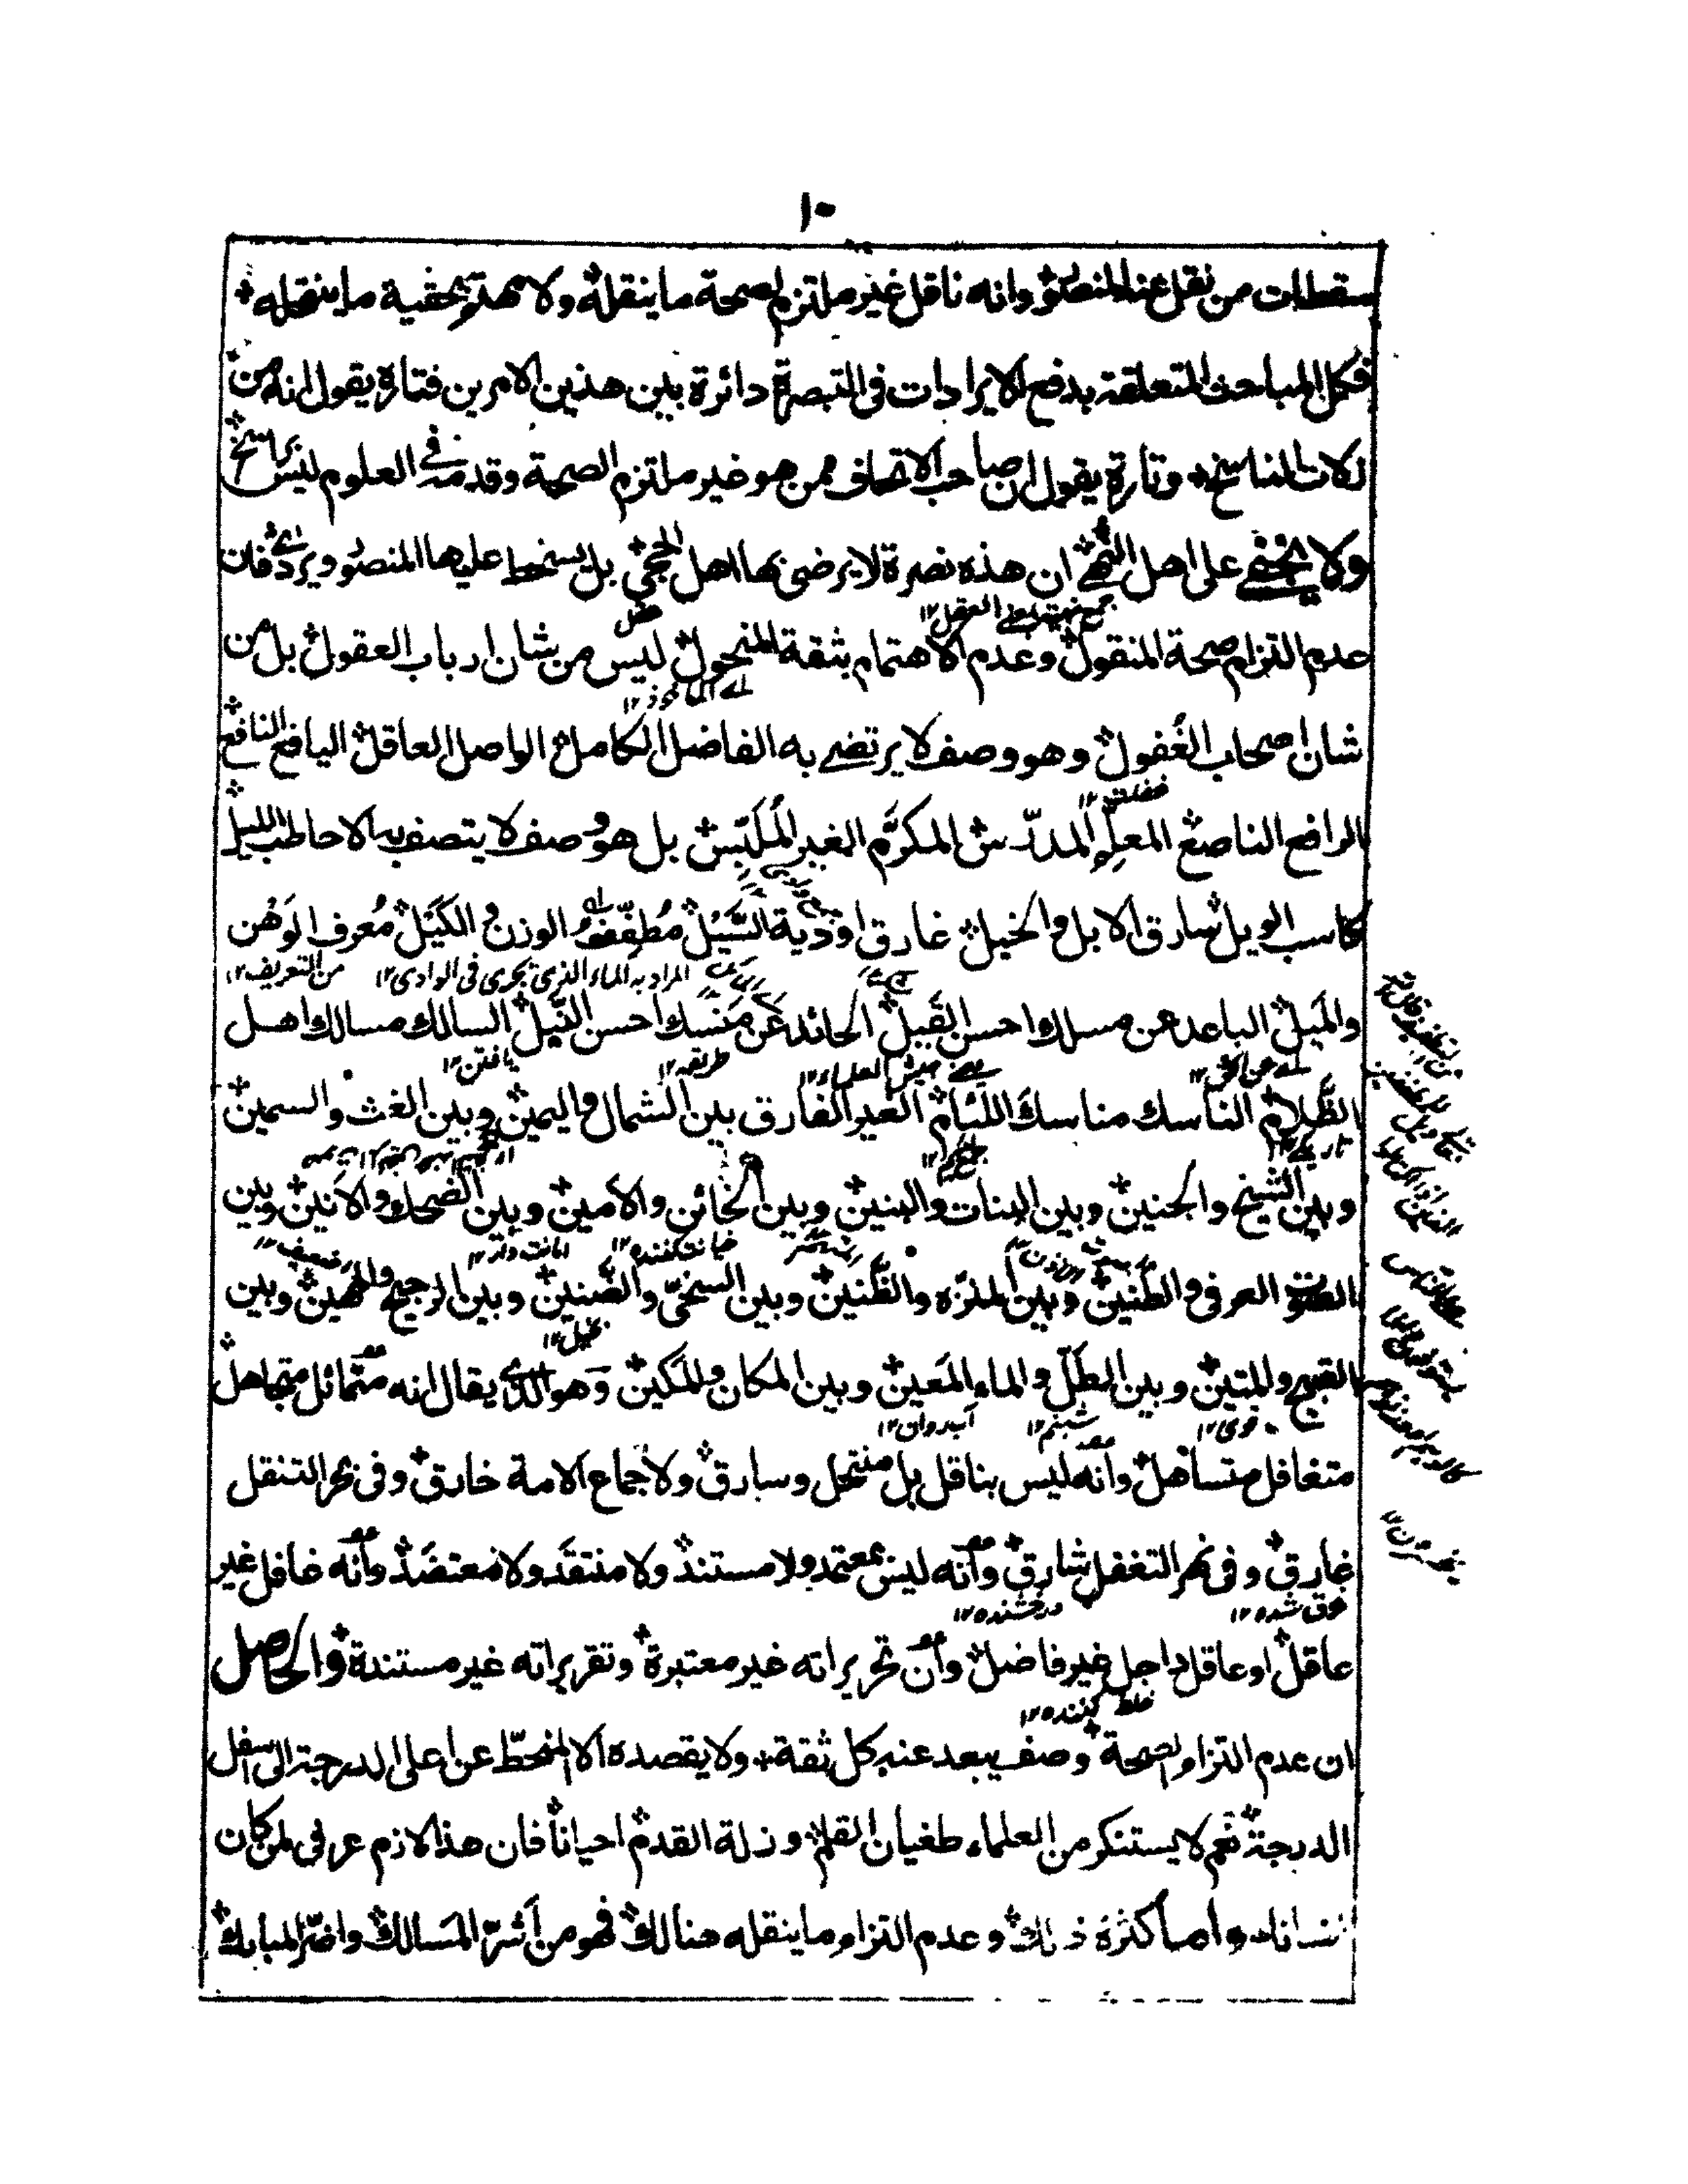 ١٠
سقطات من نقل عنه المنصور وانه ناقل غير ملتزم لصحة ما ينقله ولا مهتم بحقية ما ينتحله
فكل المباحث المتعلقة بدفع الايرادات فى التبصرة دائرة بين هذين الامرين فتارة يقول انه من
زلات الناسخ وتارة يقول ان صاحب الاتحاف ممن هو غير ملتزم الصحة وقدمه فى العلوم ليس براسخ
ولا يخفى على اهل النهى ان هذه نصرة لا يرضى بها اهل الحجى بل يسخط عليها المنصور ويردى فان
جمع نهية بمعنى العقل ١٢
عقل
عدم التزام صحة المنقول وعدم الاهتمام بثقة المنحول ليس من شان ارباب العقول بل من
اے الماخوذ ١٢
شان اصحاب الغفول وهو وصف لا يرتضى به الفاضل الكامل الواصل العاقل اليافع النافع
غفلت ١٢
الرافع الناصع المعلم المدرس المكرم الغير الملبس بل هو وصف لا يتصف به الا حاطب الليل
كاسب الويل سارق الابل والخيل غارق اودية السيل مطفف الوزن والكيل معرف الوهن
المراد به الماء الذى يجرى فى الوادى ١٢
من التعريف ١٢
والميل الباعد عن مسلك احسن القيل الحائد عن منسك احسن النيل السالك مسالك اهل
طريقه ١٢
يافتن ١٢
الظلام الناسك مناسك اللئام الغير الفارق بين الشمال واليمين وبين الغث والسمين
تاريكى ١٢
وبين الشيخ والجنين وبين البنات والبنين وبين الخائن والامين وبين الضحك والانين وبين
خيانت كننده ١٢
امانت دار ١٢
الصوت العرفى والطنين وبين المنزه والظنين وبين السخى والضنين وبين الرجيح والمهين وبين
بخيل ١٢
القبيح والمتين وبين الطل والماء المعين وبين المكان والمكين وهو الذى يقال انه متمائل متجاهل
قوى ١٢
شبنم ١٢
آب روان ١٢
متغافل متساهل وانه ليس بناقل بل منتحل وسارق ولاجماع الامة خارق وفى بحر التنقل
غارق وفى نهر التغفل شارق وانه ليس بمعتمد ولا مستند ولا منتقد ولا معتضد وانه غافل غير
غرق شده ١٢
درخشنده ١٢
عاقل او عاقل داجل غير فاضل وان تحريراته غير معتبرة وتقريراته غير مستندة والحاصل
خلط كننده ١٢
ان عدم التزام لصحة وصف يبعد عنه كل ثقة ولا يقصده الا المنحط عن اعلى الدرجة الى اسفل
الدرجة نعم لا يستنكر من العلماء طغيان القلم وزلة القدم احيانا فان هذا لازم عرفى لمن كان
انسانا واما كثرة ذلك وعدم التزام ما ينقله هنالك فهو من اشر المسالك واضر المبارك